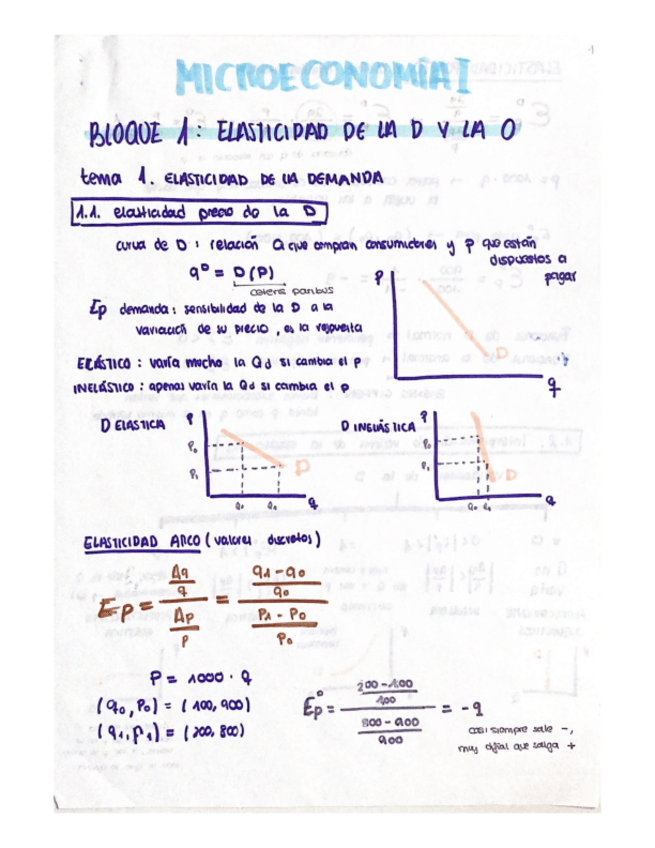 MICROECONOMÍA I
BLOQUE 1: ELASTICIDAD DE LA D Y LA O
tema 1. ELASTICIDAD DE LA DEMANDA
1.1. elasticidad precio de la D
curva de D: relación Q que compran consumidores y P que están dispuestos a pagar
q^D = D(P)
ceteris paribus
Ep demanda: sensibilidad de la D a la
variación de su precio, es la respuesta
ELÁSTICO: varía mucho la Qd si cambia el P
INELÁSTICO: apenas varía la Qd si cambia el P
P
D
q
D ELÁSTICA
P
P₀
P₁
D
q₀ q₁ q
D INELÁSTICA
P
P₀
P₁
D
q₀ q₁ q
ELASTICIDAD ARCO (valores discretos)
Ep = (Δq / q) / (Δp / p) = ((q1 - q0) / q0) / ((P1 - P0) / P0)
P = 1000 · q
(q0, P0) = (100, 900)
(q1, P1) = (200, 800)
Ep^D = ((200 - 100) / 100) / ((800 - 900) / 900) = -9
casi siempre sale -,
muy difícil que salga +